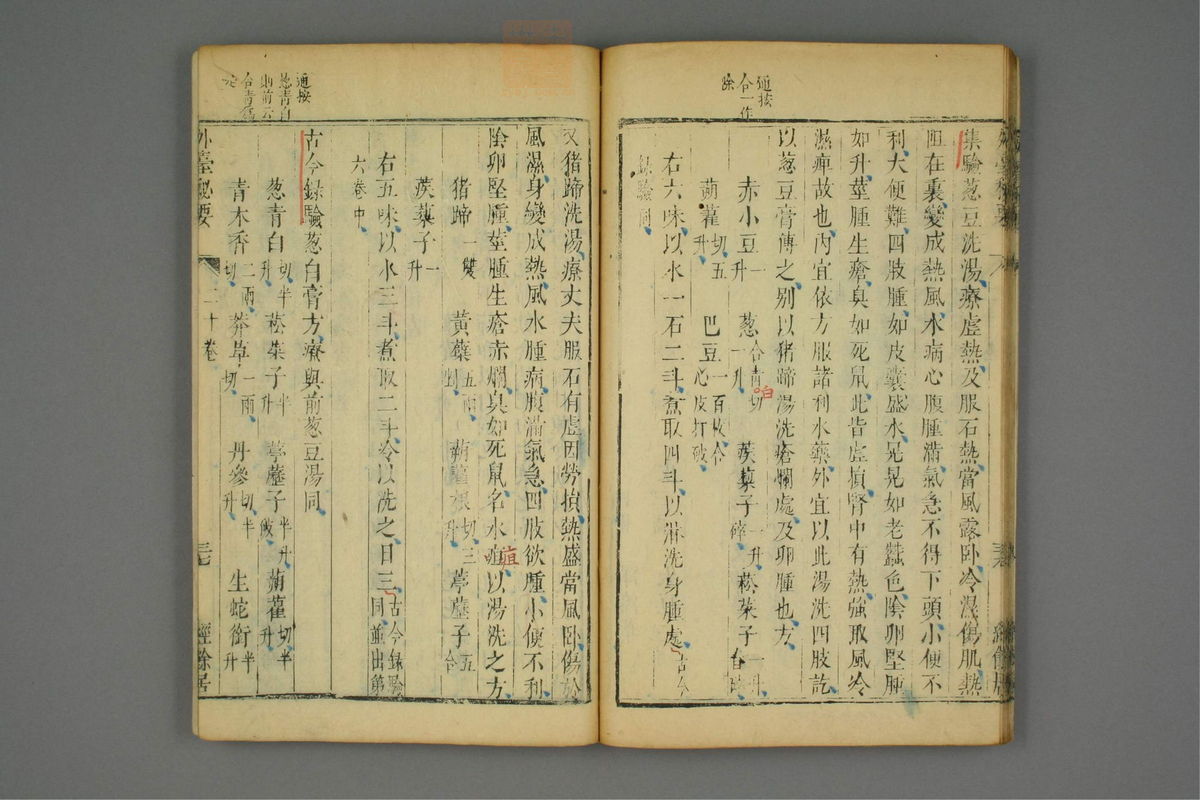 集驗葱豆洗湯療虛熱及服石熱當風露卧冷濕傷肌熱
阻在裏變成熱風水病心腹腫滿氣急不得下頭小便不
利大便難四肢腫如皮囊盛水晃晃如老蠶色陰卵堅腫
如升莖腫生瘡臭如死鼠此皆虛損腎中有熱強取風冷
濕痺故也内宜依方服諸利水藥外宜以此湯洗四肢訖
以葱豆膏傅之别以猪蹄湯洗瘡爛處及卵腫也方
赤小豆一升 葱合青切一升 白 蒺藜子一升碎 菘菜子一升舂碎
蒴藋切五升 巴豆一百枚合心皮打破
右六味以水一石二斗煮取四斗以淋洗身腫處古今
録驗同
通按
合一作
除
又猪蹄洗湯療丈夫服石有虛因勞損熱盛當風卧傷於
風濕身變成熱風水腫病腹滿氣急四肢欲腫小便不利
陰卵堅腫莖腫生瘡赤爛臭如死鼠名水疽以湯洗之方
疽
猪蹄一雙 黄蘗五兩 蒴藋根切三升 葶藶子五合
蒺藜子一升
右五味以水三斗煮取二斗冷以洗之日三古今録驗同並出第
六卷中
古今録驗葱白膏方療與前葱豆湯同
葱青白切半升 菘菜子半升 葶藶子半升 蒴藋切半升
青木香二兩切 莽草一兩切 丹參切半升 生蛇銜半升
外臺秘要 二十卷 三七 經餘居
通按
葱青白
則前云
合青爲